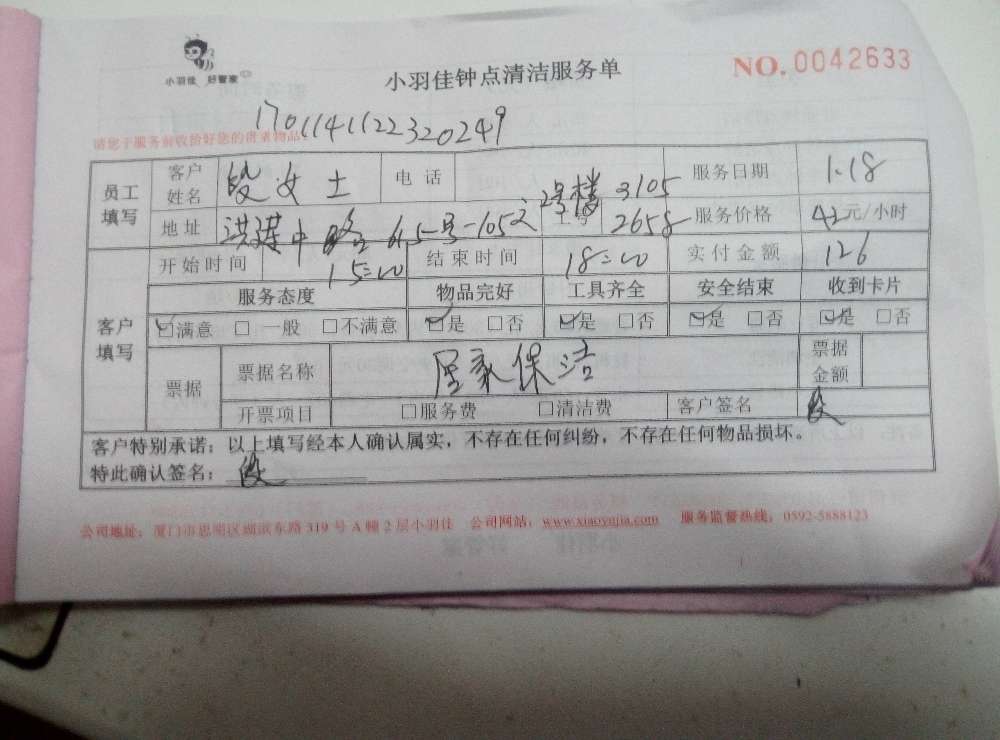 小羽佳 好管家
小羽佳钟点清洁服务单
NO. 0042633
1701141122320249
请您于服务前收拾好您的贵重物品
员工填写 客户姓名 段女士 电话 服务日期 1.18
地址 洪莲中路 615号-105之 2号楼 3105 工号 2658 服务价格 42元/小时
开始时间 15:00 结束时间 18:00 实付金额 126
客户填写 服务态度 物品完好 工具齐全 安全结束 收到卡片
☑满意 □一般 □不满意 ☑是 □否 ☑是 □否 ☑是 □否 ☑是 □否
票据 票据名称 居家保洁 票据金额
开票项目 □服务费 □清洁费 客户签名 段
客户特别承诺：以上填写经本人确认属实，不存在任何纠纷，不存在任何物品损坏。
特此确认签名： 段
公司地址：厦门市思明区湖滨东路 319 号 A 幢 2 层小羽佳 公司网站：www.xiaoyujia.com 服务监督热线：0592-5888123